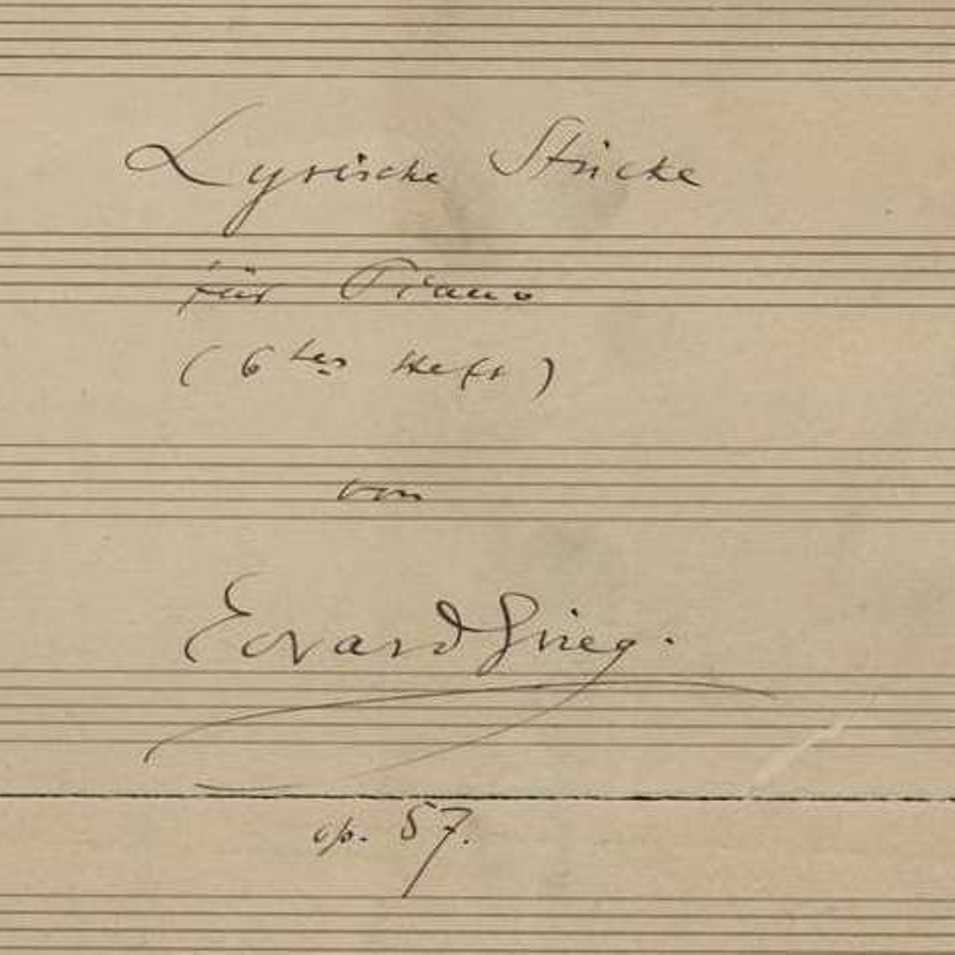 Lyrische Stücke
für Piano
(6tes Heft)
von
Edvard Grieg.
op. 57.